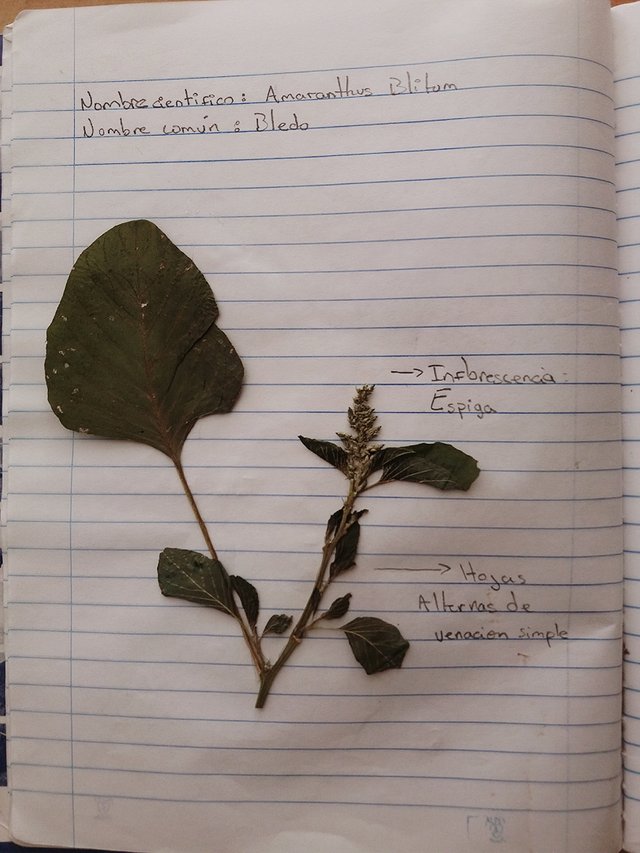 Nombre cientifico: Amaranthus Blitum
Nombre común: Bledo
→ Inflorescencia:
Espiga
→ Hojas
Alternas de
venación simple